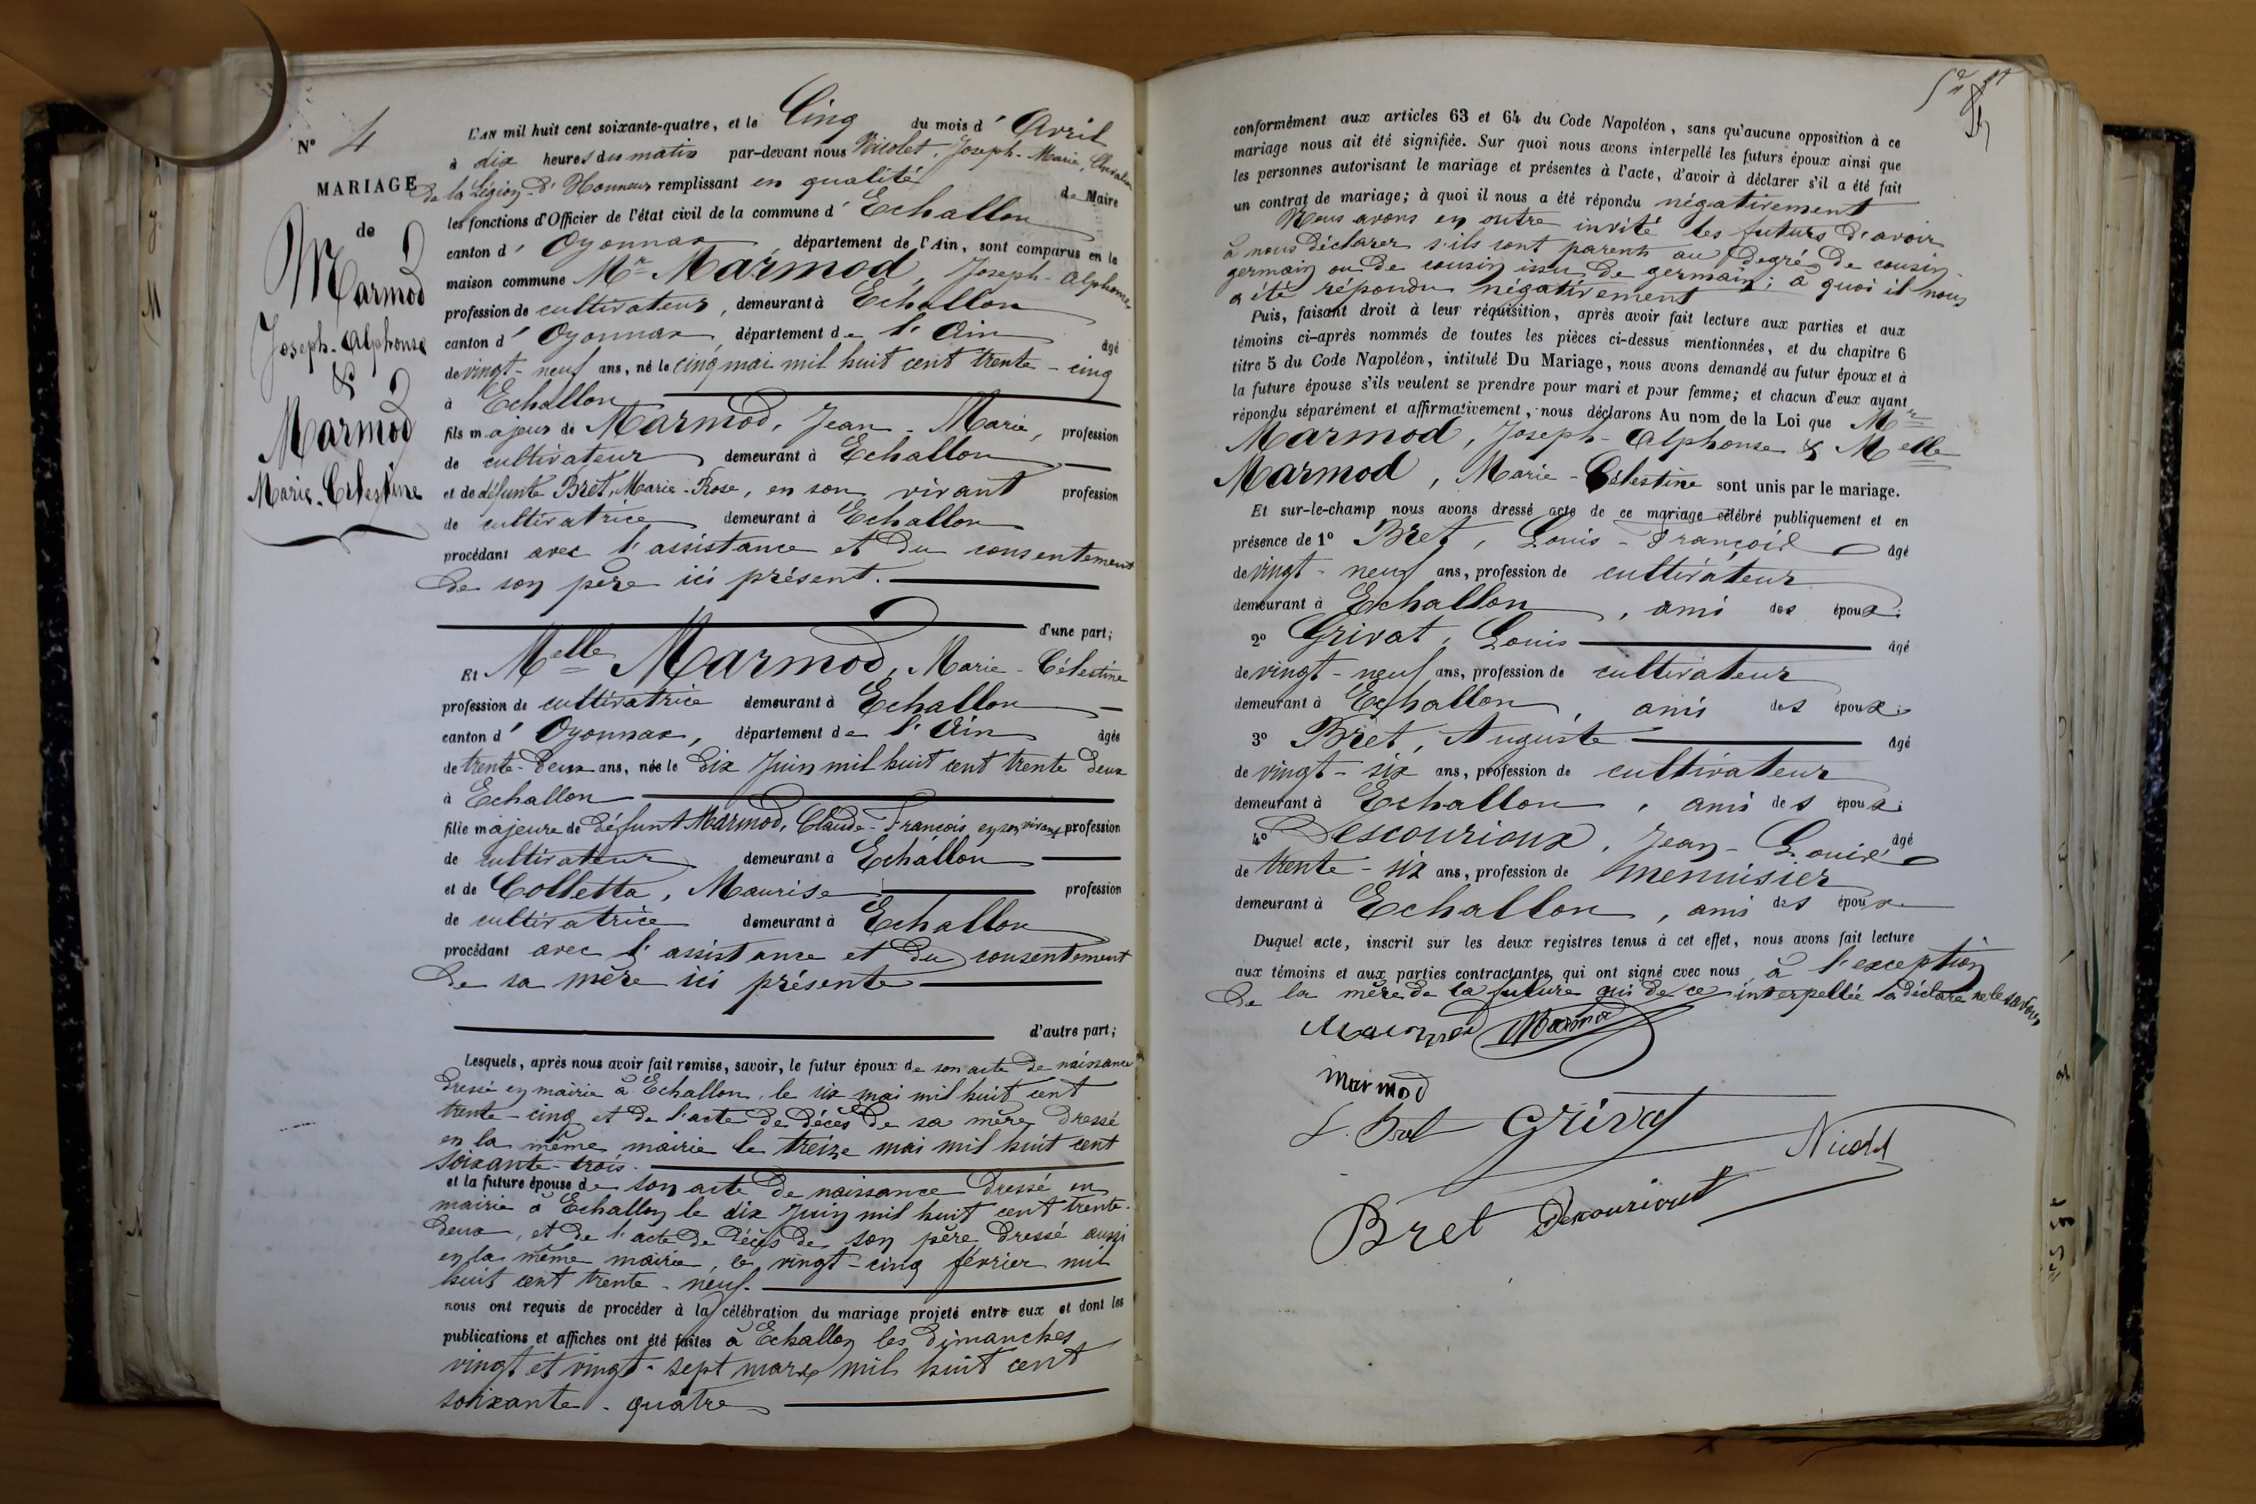 N° 4
MARIAGE
de
Marmod
Joseph-Alphonse
&
Marmod
Marie-Célestine
L'AN mil huit cent soixante-quatre, et le Cinq du mois d' Avril
à dix heures du matin par-devant nous Nicolet, Joseph-Marie, Chevalier
de la Légion d'Honneur remplissant en qualité de Maire
les fonctions d'Officier de l'état civil de la commune d' Echallon
canton d' Oyonnax, département de l'Ain, sont comparus en la
maison commune Mr Marmod, Joseph-Alphonse
profession de cultivateur, demeurant à Echallon
canton d' Oyonnax, département de l'Ain âgé
de vingt-neuf ans, né le cinq mai mil huit cent trente-cinq
à Echallon
fils majeur de Marmod, Jean-Marie, profession
de cultivateur demeurant à Echallon
et de défunte Bret, Marie-Rose, en son vivant profession
de cultivatrice demeurant à Echallon
procédant avec l'assistance et du consentement
de son père ici présent.
d'une part;
Et Melle Marmod, Marie-Célestine
profession de cultivatrice demeurant à Echallon
canton d' Oyonnax, département de l'Ain âgée
de trente-deux ans, née le dix Juin mil huit cent trente deux
à Echallon
fille majeure de défunt Marmod, Claude-François, en son vivant profession
de cultivateur demeurant à Echallon
et de Colletta, Maurise profession
de cultivatrice demeurant à Echallon
procédant avec l'assistance et du consentement
de sa mère ici présente
d'autre part;
Lesquels, après nous avoir fait remise, savoir, le futur époux de son acte de naissance
dressé en mairie à Echallon, le six mai mil huit cent
trente-cinq et de l'acte de décès de sa mère dressé
en la même mairie le treize mai mil huit cent
soixante-trois.
et la future épouse de son acte de naissance dressé en
mairie à Echallon le dix Juin mil huit cent trente-
deux, et de l'acte de décès de son père dressé aussi
en la même mairie, le vingt-cinq février mil
huit cent trente-neuf.
nous ont requis de procéder à la célébration du mariage projeté entre eux et dont les
publications et affiches ont été faites à Echallon les dimanches
vingt et vingt-sept mars mil huit cent
soixante-quatre
conformément aux articles 63 et 64 du Code Napoléon, sans qu'aucune opposition à ce
mariage nous ait été signifiée. Sur quoi nous avons interpellé les futurs époux ainsi que
les personnes autorisant le mariage et présentes à l'acte, d'avoir à déclarer s'il a été fait
un contrat de mariage; à quoi il nous a été répondu négativement
Nous avons en outre invité les futurs d'avoir
à nous déclarer s'ils sont parents au degré de cousin-
germain ou de cousin issu de germain; à quoi il nous
a été répondu négativement
Puis, faisant droit à leur réquisition, après avoir fait lecture aux parties et aux
témoins ci-après nommés de toutes les pièces ci-dessus mentionnées, et du chapitre 6
titre 5 du Code Napoléon, intitulé Du Mariage, nous avons demandé au futur époux et à
la future épouse s'ils veulent se prendre pour mari et pour femme; et chacun d'eux ayant
répondu séparément et affirmativement, nous déclarons Au nom de la Loi que Mr
Marmod, Joseph-Alphonse & Melle
Marmod, Marie-Célestine sont unis par le mariage.
Et sur-le-champ nous avons dressé acte de ce mariage célébré publiquement et en
présence de 1° Bret, Louis-François âgé
de vingt-neuf ans, profession de cultivateur
demeurant à Echallon, ami des époux;
2° Grivat, Louis âgé
de vingt-neuf ans, profession de cultivateur
demeurant à Echallon, ami des époux;
3° Bret, Auguste âgé
de vingt-six ans, profession de cultivateur
demeurant à Echallon, ami des époux;
4° Descourioux, Jean-Louis âgé
de trente-six ans, profession de menuisier
demeurant à Echallon, ami des époux
Duquel acte, inscrit sur les deux registres tenus à cet effet, nous avons fait lecture
aux témoins et aux parties contractantes, qui ont signé avec nous, à l'exception
de la mère de la future qui de ce interpellée a déclaré ne le savoir
Marmod Marmod
Marmod
L. Bret Grivat
Nicolet
Bret